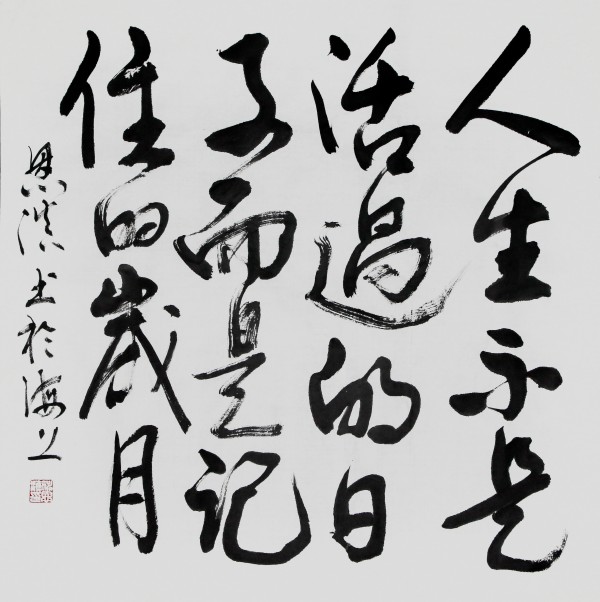 人生不是
活過的日
子而是记
住的歲月
书於海上